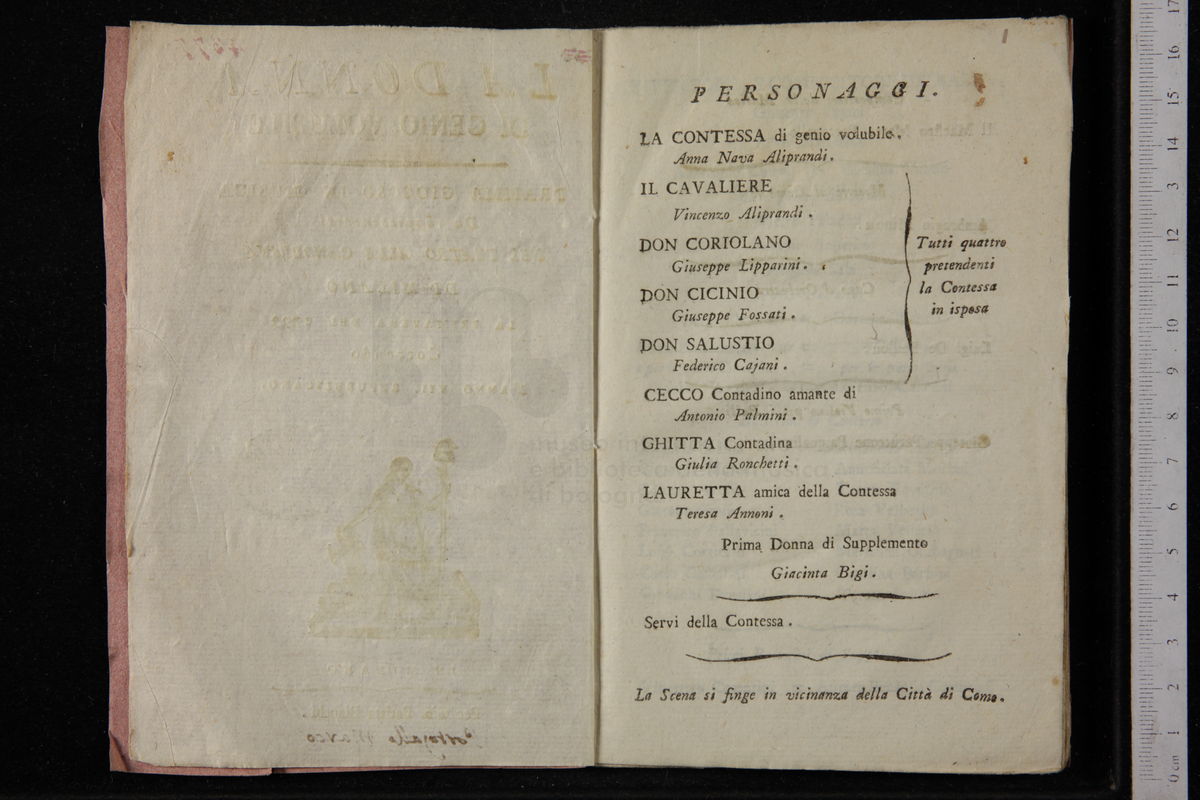 1
PERSONAGGI.
LA CONTESSA di genio volubile.
Anna Nava Aliprandi.
IL CAVALIERE
Vincenzo Aliprandi.
DON CORIOLANO
Giuseppe Lipparini.
DON CICINIO
Giuseppe Fossati.
DON SALUSTIO
Federico Cajani.
Tutti quattro
pretendenti
la Contessa
in isposa
CECCO Contadino amante di
Antonio Palmini.
GHITTA Contadina
Giulia Ronchetti.
LAURETTA amica della Contessa
Teresa Annoni.
Prima Donna di Supplemento
Giacinta Bigi.
Servi della Contessa.
La Scena si finge in vicinanza della Città di Como.
LA DONNA
DI GENIO VOLUBILE
museo
e biblioteca della musica
di bologna
0 cm 1 2 3 4 5 6 7 8 9 10 11 12 13 14 15 16 17